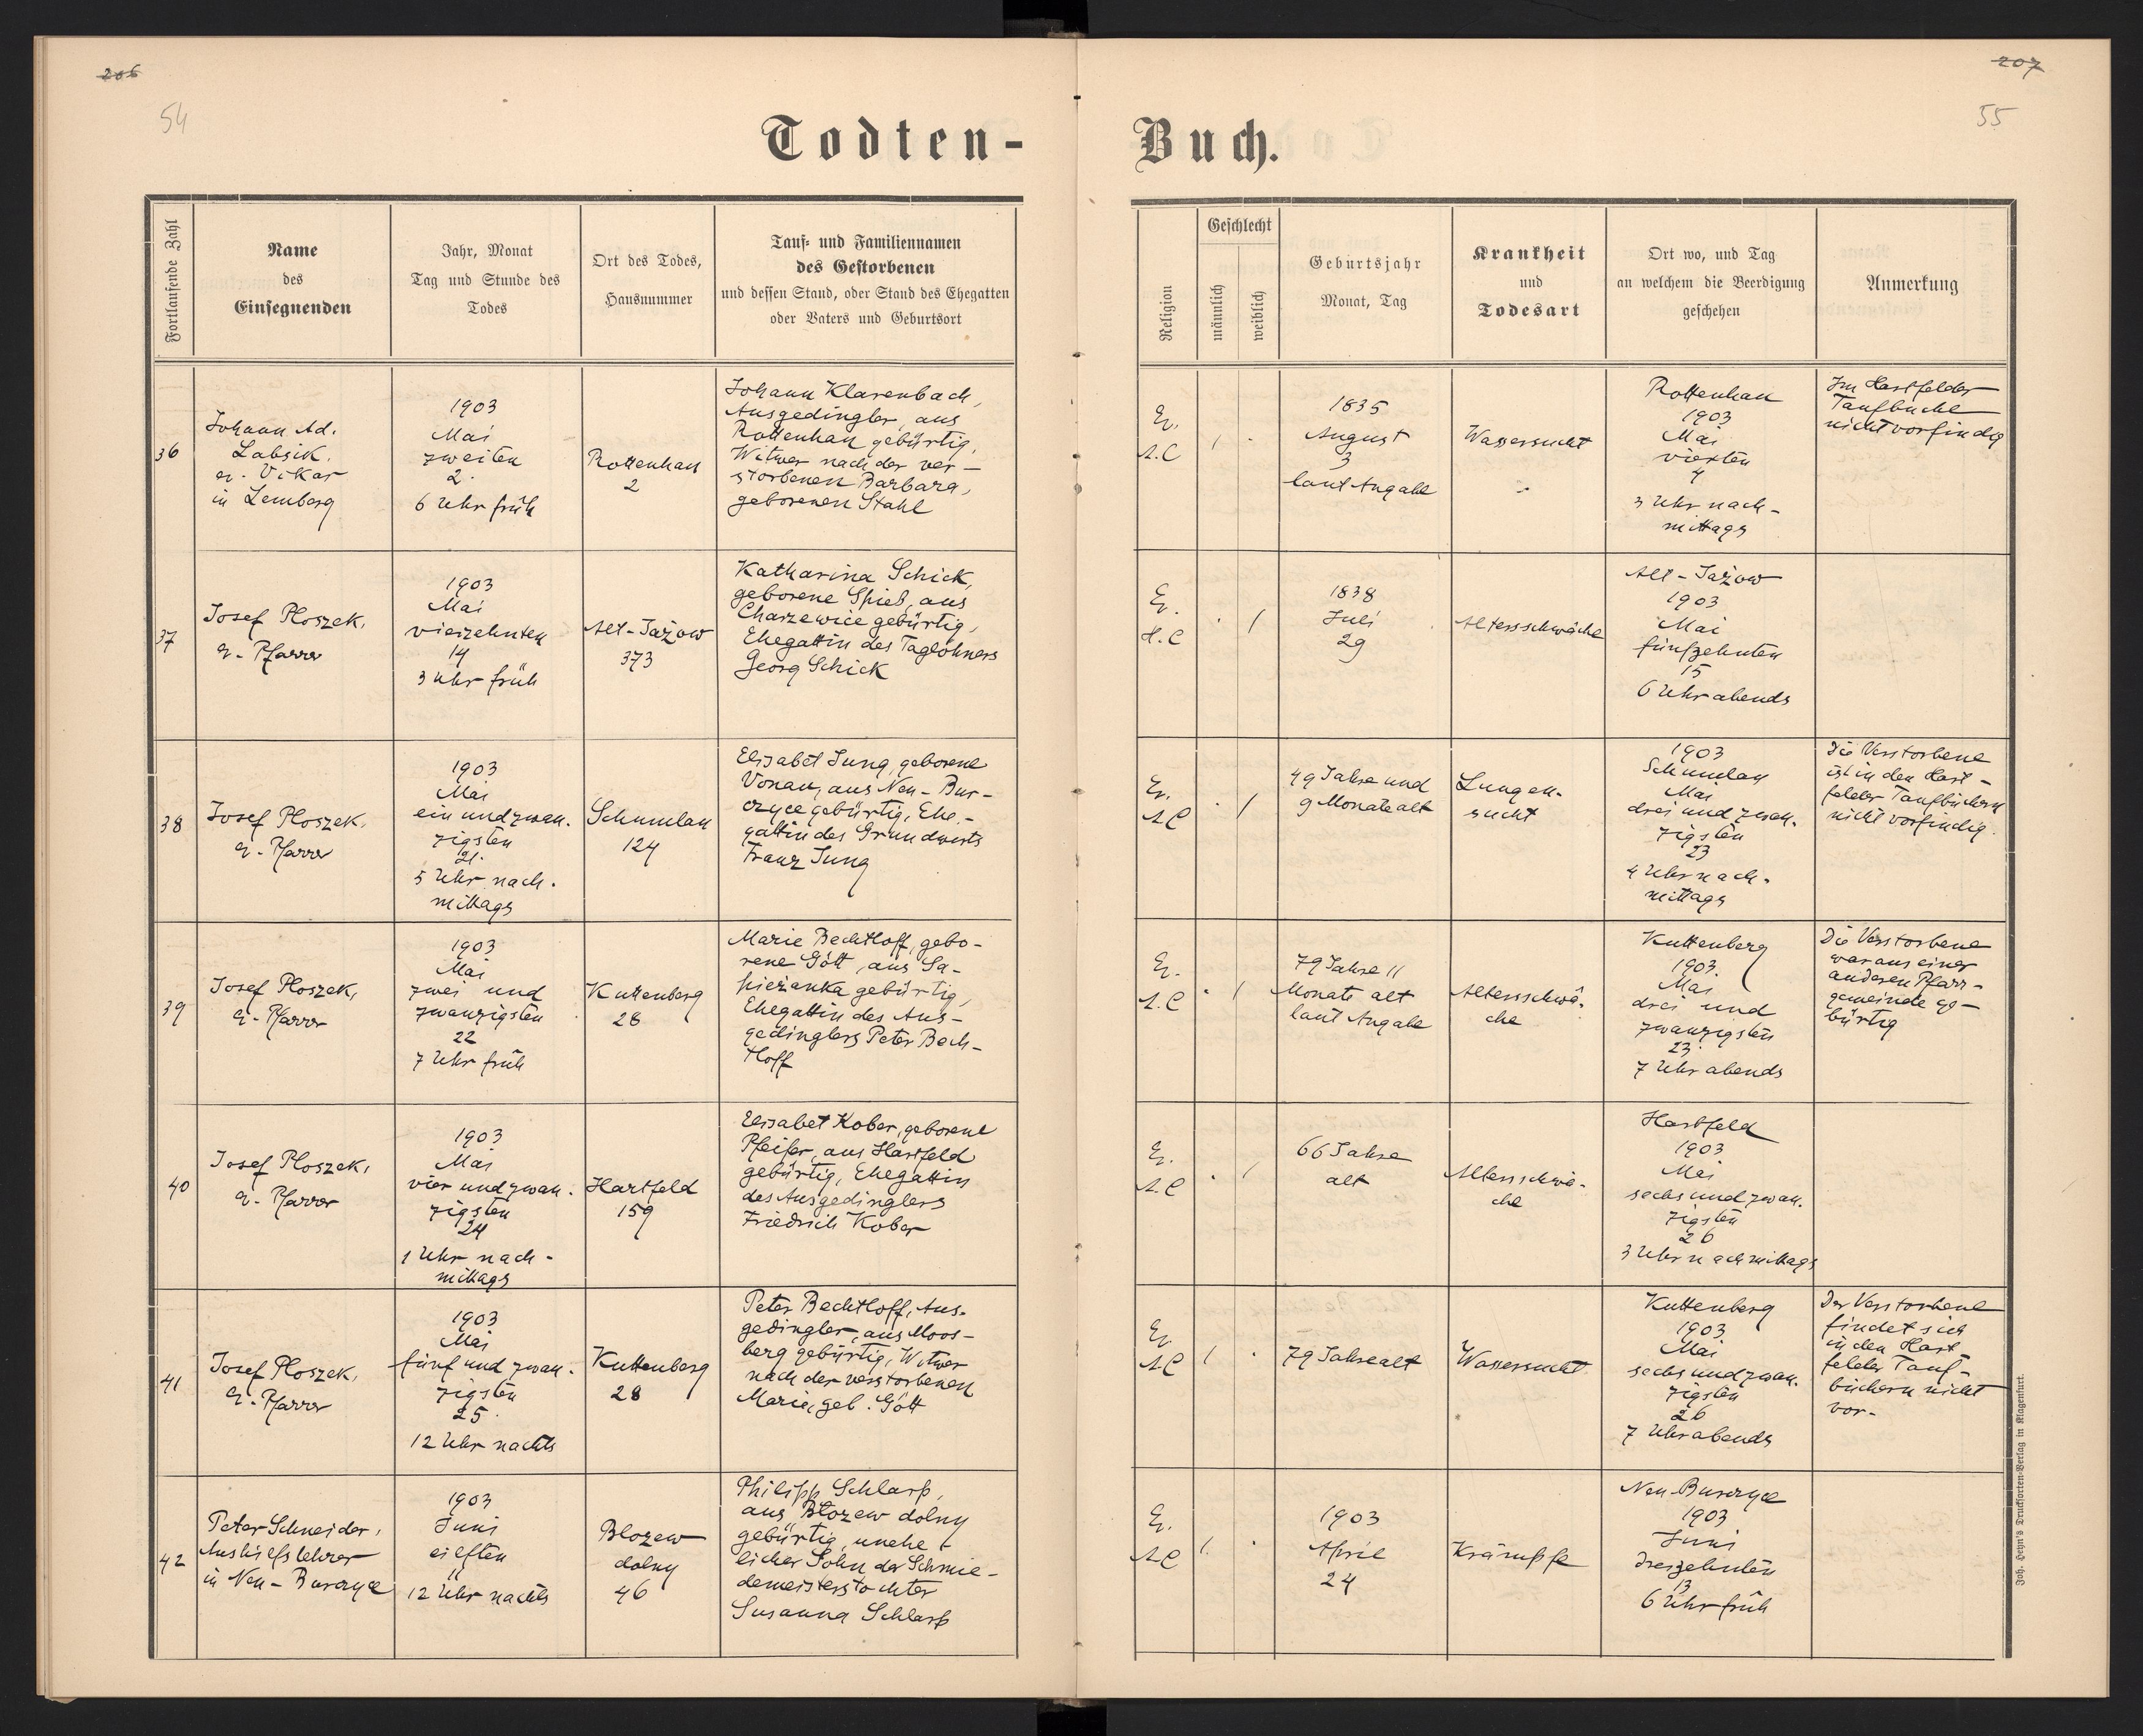 206
207
54
55
Todten-
Buch.
Fortlaufende Zahl
Name
des
Einsegnenden
Jahr, Monat
Tag und Stunde des
Todes
Ort des Todes,
Hausnummer
Tauf- und Familiennamen
des Gestorbenen
und dessen Stand, oder Stand des Ehegatten
oder Vaters und Geburtsort
Religion
Geschlecht
männlich
weiblich
Geburtsjahr
Monat, Tag
Krankheit
und
Todesart
Ort wo, und Tag
an welchem die Beerdigung
geschehen
Anmerkung
36
Johann Ad.
Labsik,
ev. Vikar
in Lemberg
1903
Mai
zweiten
2.
6 Uhr früh
Rottenhan
2
Johann Klarenbach,
Ausgedingler, aus
Rottenhan gebürtig,
Witwer nach der ver-
storbenen Barbara,
geborenen Stahl
Ev.
A.C
1835
August
3
laut Angabe
Wassersucht
Rottenhan
1903
Mai
vierten
4
3 Uhr nach-
mittags
Im Hartfelder
Taufbuche
nicht vorfindig
37
Josef Ploszek,
ev. Pfarrer
1903
Mai
vierzehnten
14
3 Uhr früh
Alt-Jażow
373
Katharina Schick,
geborene Spieß, aus
Charzewice gebürtig,
Ehegattin des Taglöhners
Georg Schick
Ev.
H.C
1838
Juli
29
Altersschwäche
Alt-Jażow
1903
Mai
fünfzehnten
15
6 Uhr abends
38
Josef Ploszek,
ev. Pfarrer
1903
Mai
ein und zwan-
zigsten
21.
5 Uhr nach-
mittags
Schumlau
124
Elisabet Jung, geborene
Vonau, aus Neu-Bur-
czyce gebürtig, Ehe-
gattin des Grundwirts
Franz Jung
Ev.
A.C
49 Jahre und
9 Monate alt
Lungen-
sucht
1903
Schumlau
Mai
drei und zwan-
zigsten
23
4 Uhr nach-
mittags
Die Verstorbene
ist in den Hart-
felder Taufbüchern
nicht vorfindig.
39
Josef Ploszek,
ev. Pfarrer
1903
Mai
zwei und
zwanzigsten
22
7 Uhr früh
Kuttenberg
28
Marie Bechtloff, gebo-
rene Gött, aus Sa-
pieżanka gebürtig,
Ehegattin des Aus-
gedinglers Peter Bech-
tloff
Ev.
A.C
79 Jahre 11
Monate alt
laut Angabe
Altersschwä-
che
Kuttenberg
1903.
Mai
drei und
zwanzigsten
23.
7 Uhr abends
Die Verstorbene
war aus einer
anderen Pfarr-
gemeinde ge-
bürtig
40
Josef Ploszek,
ev. Pfarrer
1903
Mai
vier und zwan-
zigsten
24
1 Uhr nach-
mittags
Hartfeld
159
Elisabet Kober, geborene
Pfeifer, aus Hartfeld
gebürtig, Ehegattin
des Ausgedinglers
Friedrich Kober
Ev.
A.C
66 Jahre
alt
Altersschwä-
che
Hartfeld
1903
Mai
sechs und zwan-
zigsten
26
3 Uhr nachmittags
41
Josef Ploszek,
Ev. Pfarrer
1903
Mai
fünf und zwan-
zigsten
25.
12 Uhr nachts
Kuttenberg
28
Peter Bechtloff, Aus-
gedingler, aus Moos-
berg gebürtig, Witwer
nach der verstorbenen
Marie, geb. Gött
Ev.
A.C
79 Jahre alt
Wassersucht
Kuttenberg
1903
Mai
sechs und zwan-
zigsten
26
7 Uhr abends
Der Verstorbene
findet sich
in den Hart-
felder Tauf-
büchern nicht
vor.
42
Peter Schneider,
Aushilfslehrer
in Neu-Burczyce
1903
Juni
eilften
11
12 Uhr nachts
Blozew
dolny
46
Philipp Schlarp,
aus Blozew dolny
gebürtig, unehe-
licher Sohn der Schmie-
demeisterstochter
Susanna Schlarp
Ev.
A.C
1903
April
24
Krämpfe
Neu-Burczyce
1903
Juni
dreizehnten
13
6 Uhr früh
Joh. Heyn's Drucksorten-Verlag in Klagenfurt.